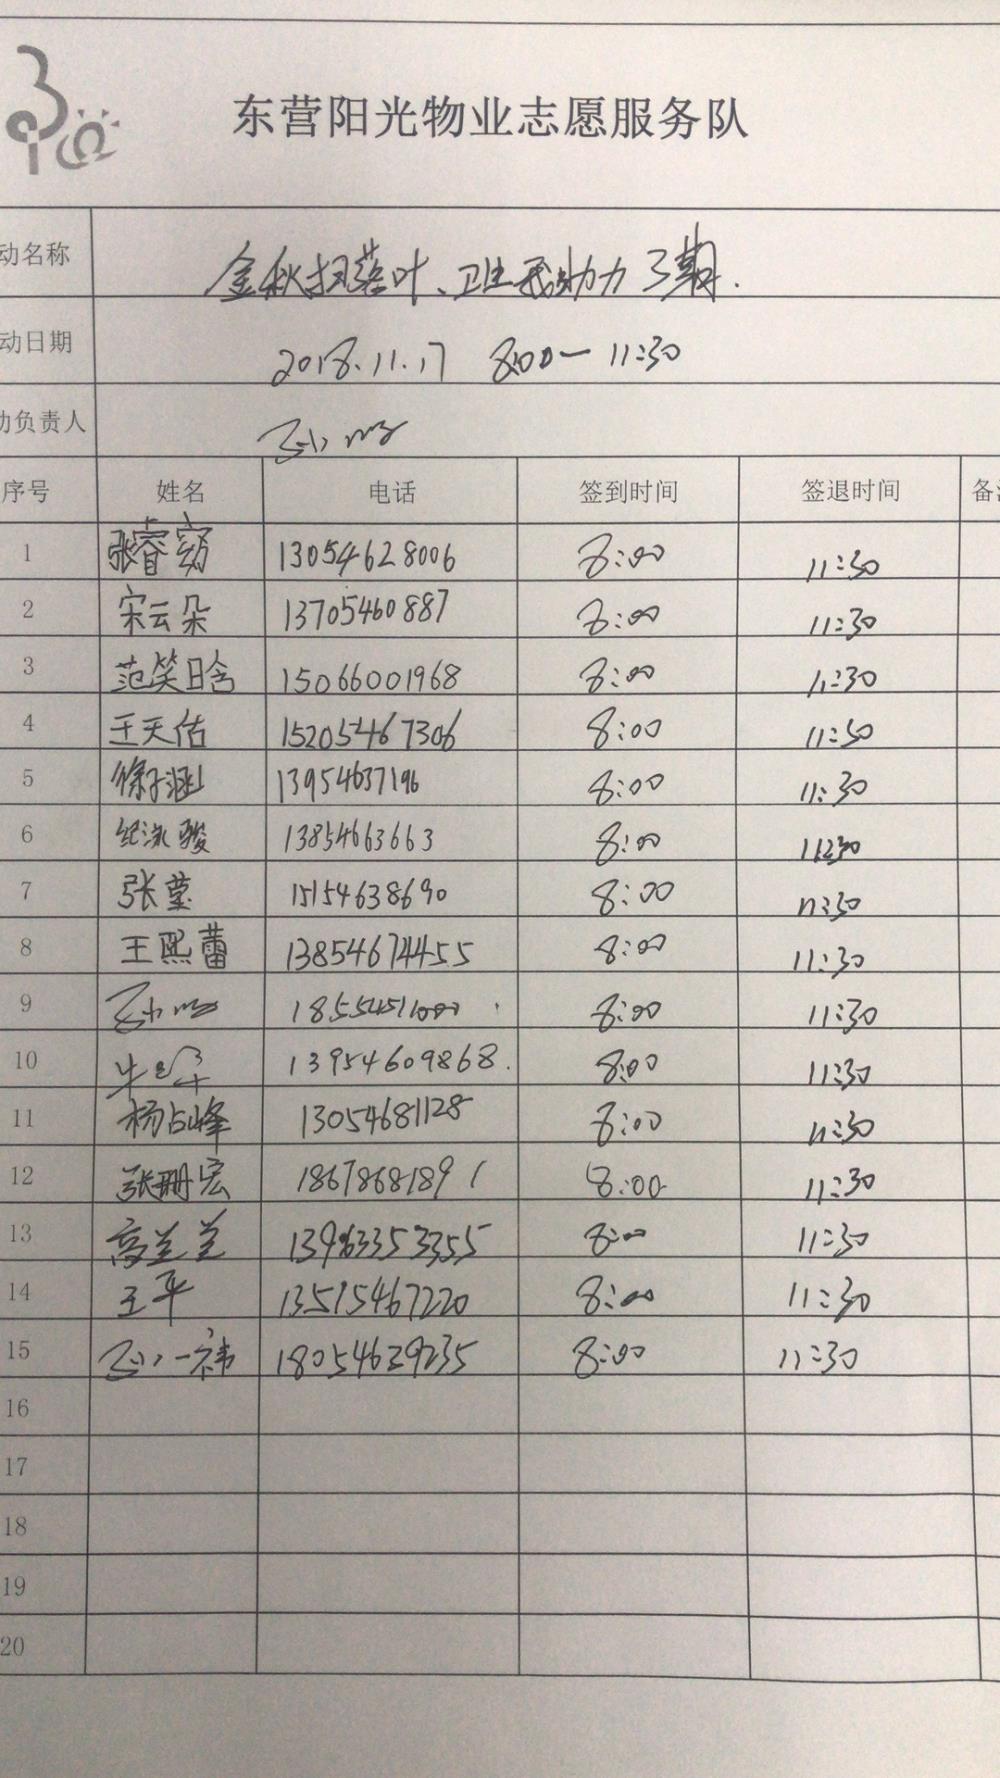 东营阳光物业志愿服务队
动名称 金秋扫落叶、卫生我助力 3期.
动日期 2018.11.17 8:00—11:30
动负责人
序号 姓名 电话 签到时间 签退时间 备
1 张睿 13054628006 8:00 11:30
2 宋云朵 13705460887 8:00 11:30
3 范笑晗 15066001968 8:00 11:30
4 王天佑 15205467306 8:00 11:30
5 徐子涵 13954637196 8:00 11:30
6 纪泳骏 13854663663 8:00 11:30
7 张莹 15154638690 8:00 11:30
8 王熙蕾 13854674455 8:00 11:30
9 8:00 11:30
10 牛 13954609868. 8:00 11:30
11 杨占峰 13054681128 8:00 11:30
12 张珊宏 18678681891 8:00 11:30
13 高兰兰 13963353355 8:00 11:30
14 王平 13515467220 8:00 11:30
15 孙一祎 18054629235 8:00 11:30
16
17
18
19
20